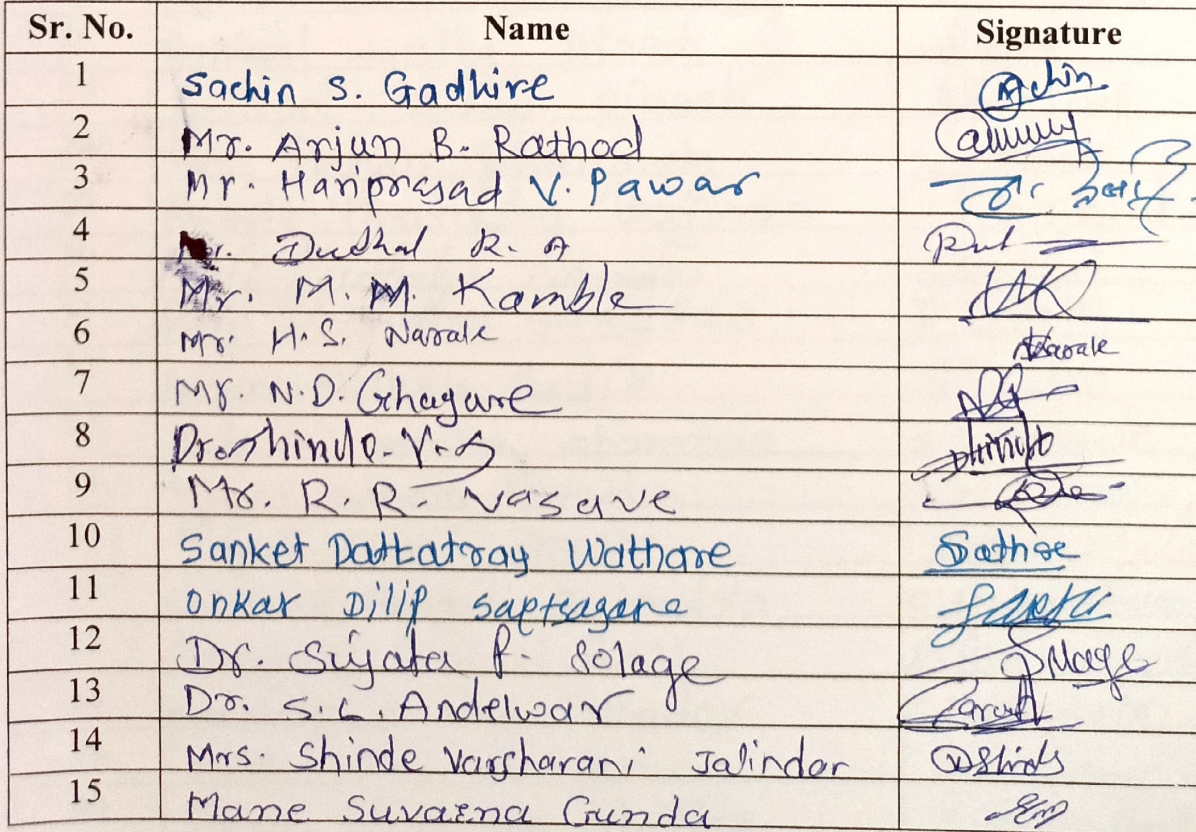 Sr. No. Name Signature
1 Sachin S. Gadhire Sachin
2 Mr. Arjun B. Rathod
3 Mr. Hariprasad V. Pawar
4 Mr. Dudhal R. A
5 Mr. M. M. Kamble
6 Mr. H. S. Narale Narale
7 Mr. N. D. Ghagare
8 Dr. Shinde. V. S
9 Mr. R. R. Vasave
10 Sanket Dattatray Wathare
11 Onkar Dilip Saptsagare
12 Dr. Sujata P. Solage
13 Dr. S. L. Andelwar
14 Mrs. Shinde Varsharani Jalindar
15 Mane Suvarna Gunda